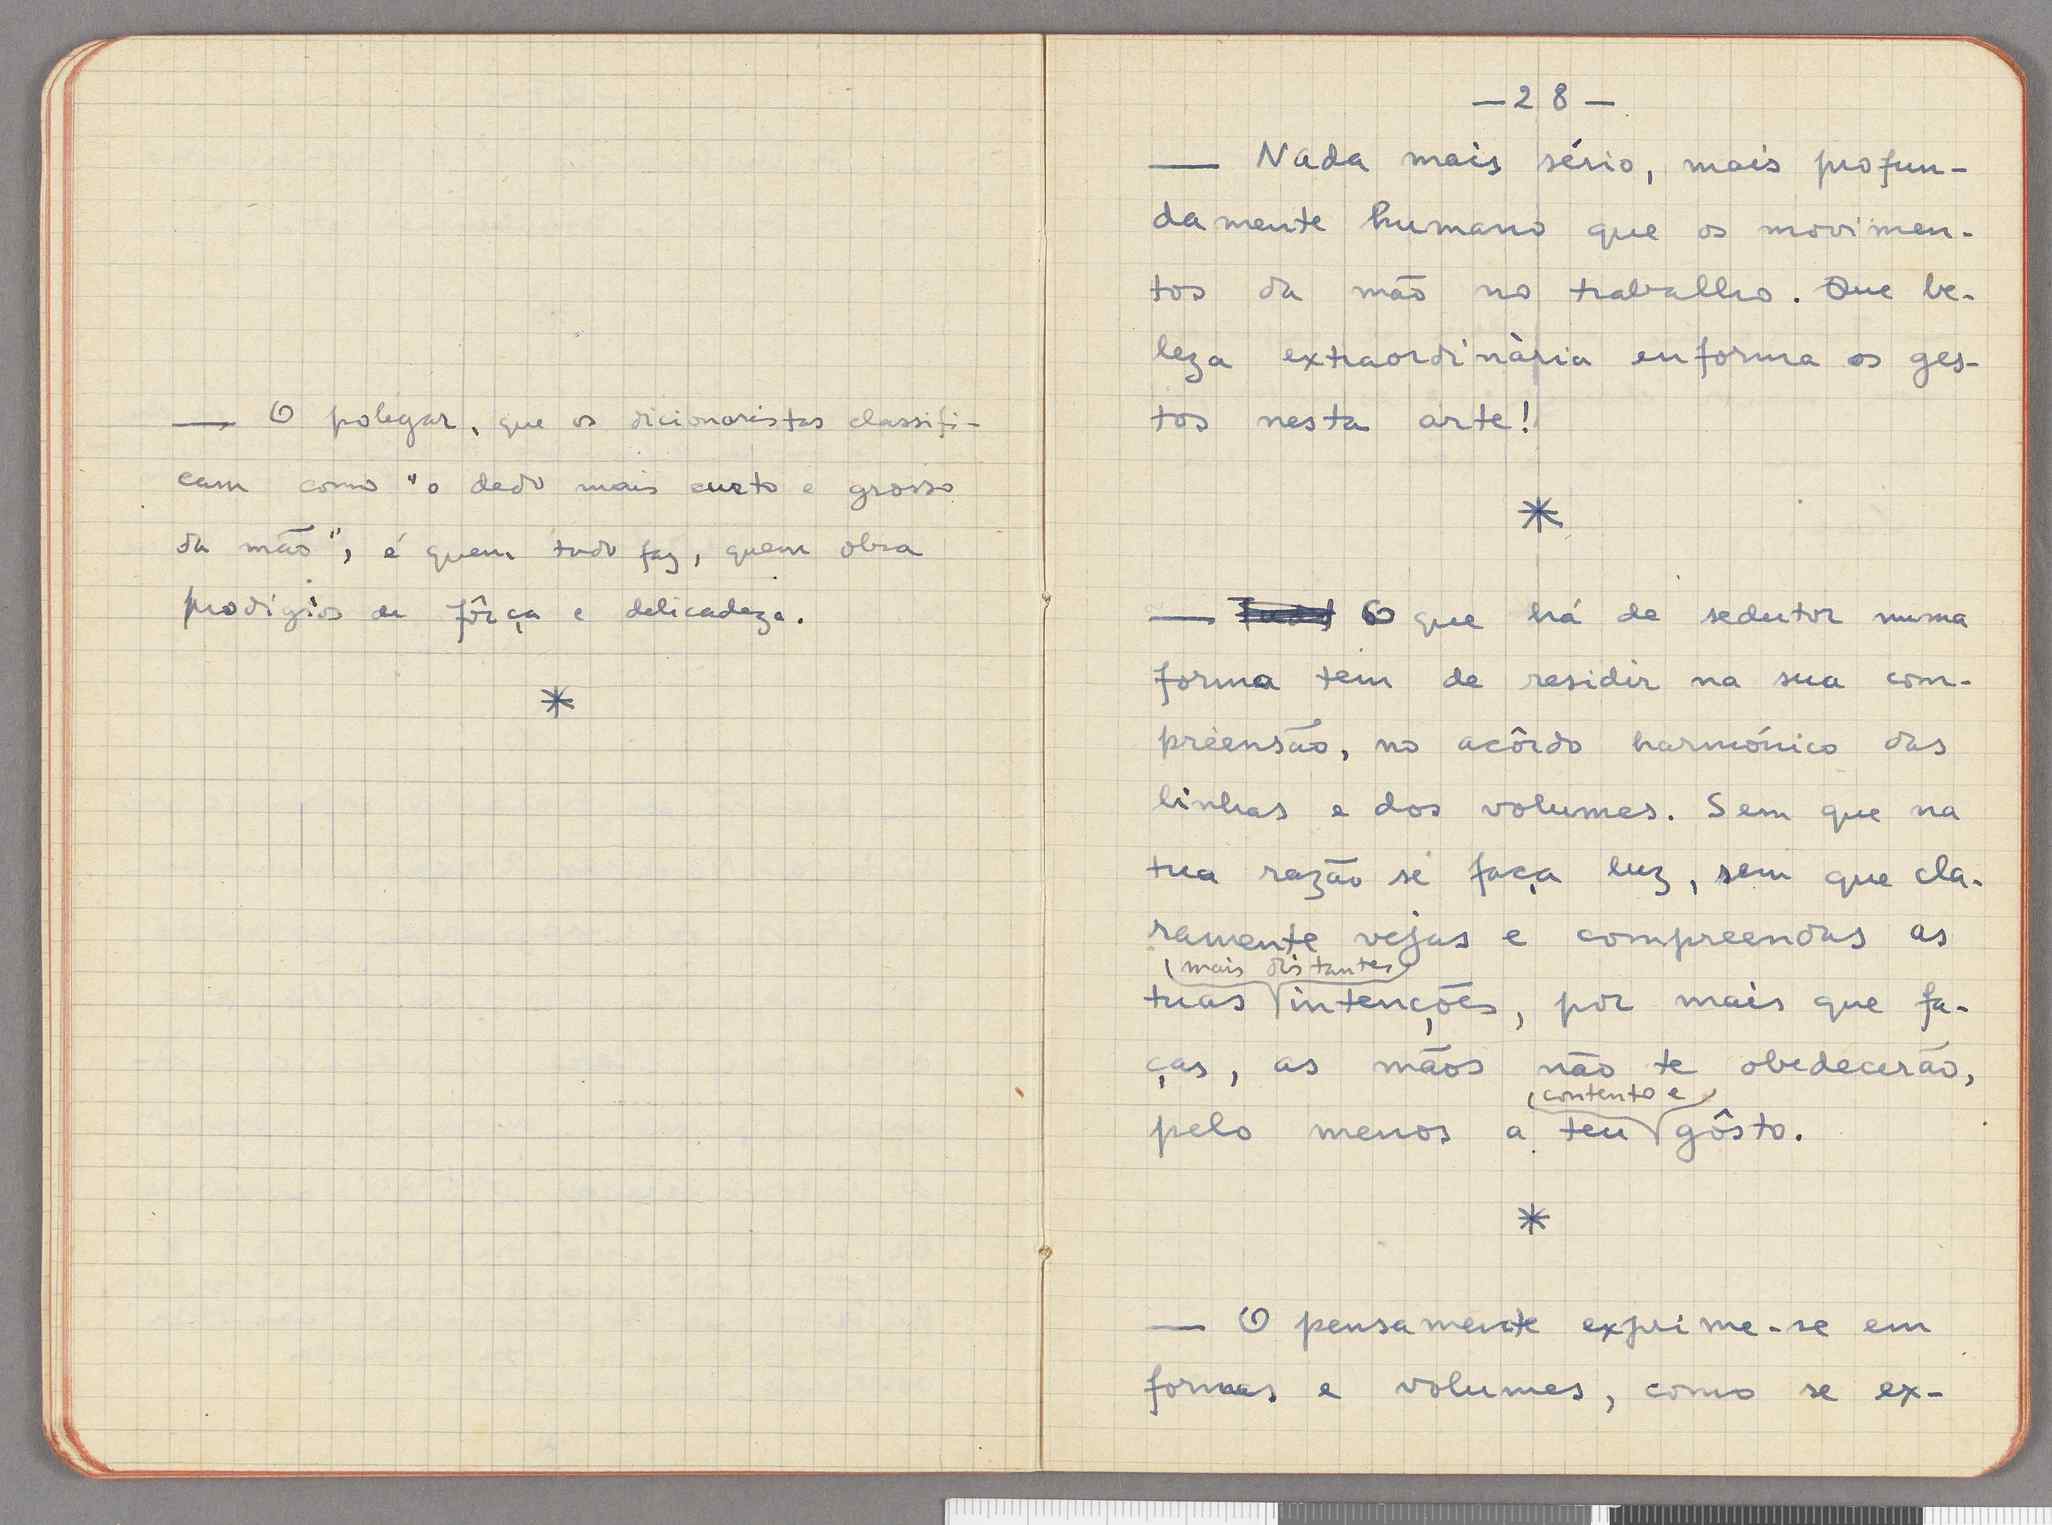 — O polegar, que os dicionaristas classifi-
cam como "o dedo mais curto e grosso
da mão", é quem tudo faz, quem obra
prodígios de fôrça e delicadeza.
*
—28—
— Nada mais sério, mais profun-
damente humano que os movimen-
tos da mão no trabalho. Que be-
leza extraordinària enforma os ges-
tos nesta arte!
*
— O que há de sedutor numa
forma tem de residir na sua com-
preensão, no acôrdo harmónico das
linhas e dos volumes. Sem que na
tua razão se faça luz, sem que cla-
ramente vejas e compreendas as
mais distantes
tuas intenções, por mais que fa-
ças, as mãos não te obedecerão,
contento e
pelo menos a teu gôsto.
*
— O pensamente exprime-se em
formas e volumes, como se ex-